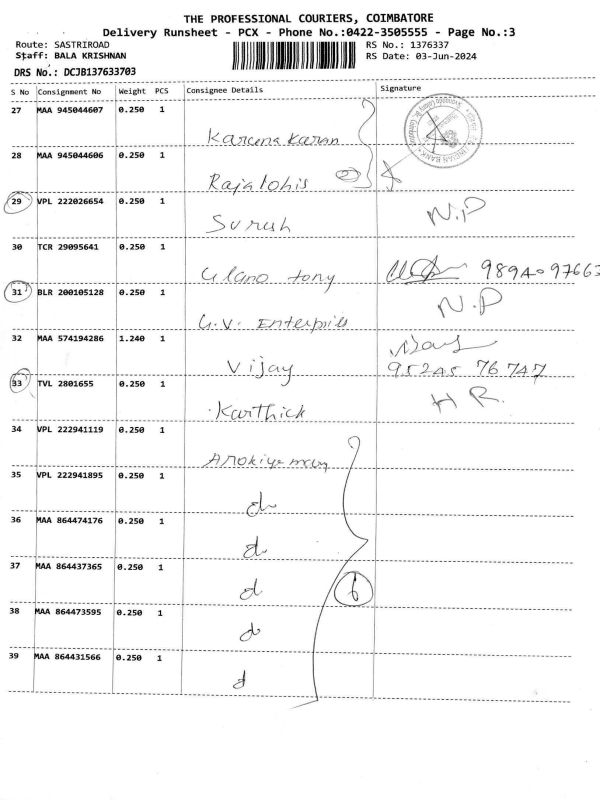 THE PROFESSIONAL COURIERS, COIMBATORE
Delivery Runsheet - PCX - Phone No.:0422-3505555 - Page No.:3
Route: SASTRIROAD RS No.: 1376337
Staff: BALA KRISHNAN RS Date: 03-Jun-2024
DRS No.: DCJB137633703
S No Consignment No Weight PCS Consignee Details Signature
27 MAA 945044607 0.250 1
Karuna Karan
28 MAA 945044606 0.250 1
Raja lohis 2
29 VPL 222026654 0.250 1
Suresh N.P
30 TCR 29095641 0.250 1
tony 98940 97663
31 BLR 200105128 0.250 1
G.V. Enterpries N.P
32 MAA 574194286 1.240 1
Vijay 95245 76747
33 TVL 2801655 0.250 1
Karthick H R.
34 VPL 222941119 0.250 1
35 VPL 222941895 0.250 1
do
36 MAA 864474176 0.250 1
do
37 MAA 864437365 0.250 1
d 6
38 MAA 864473595 0.250 1
do
39 MAA 864431566 0.250 1
d
INDIAN BANK